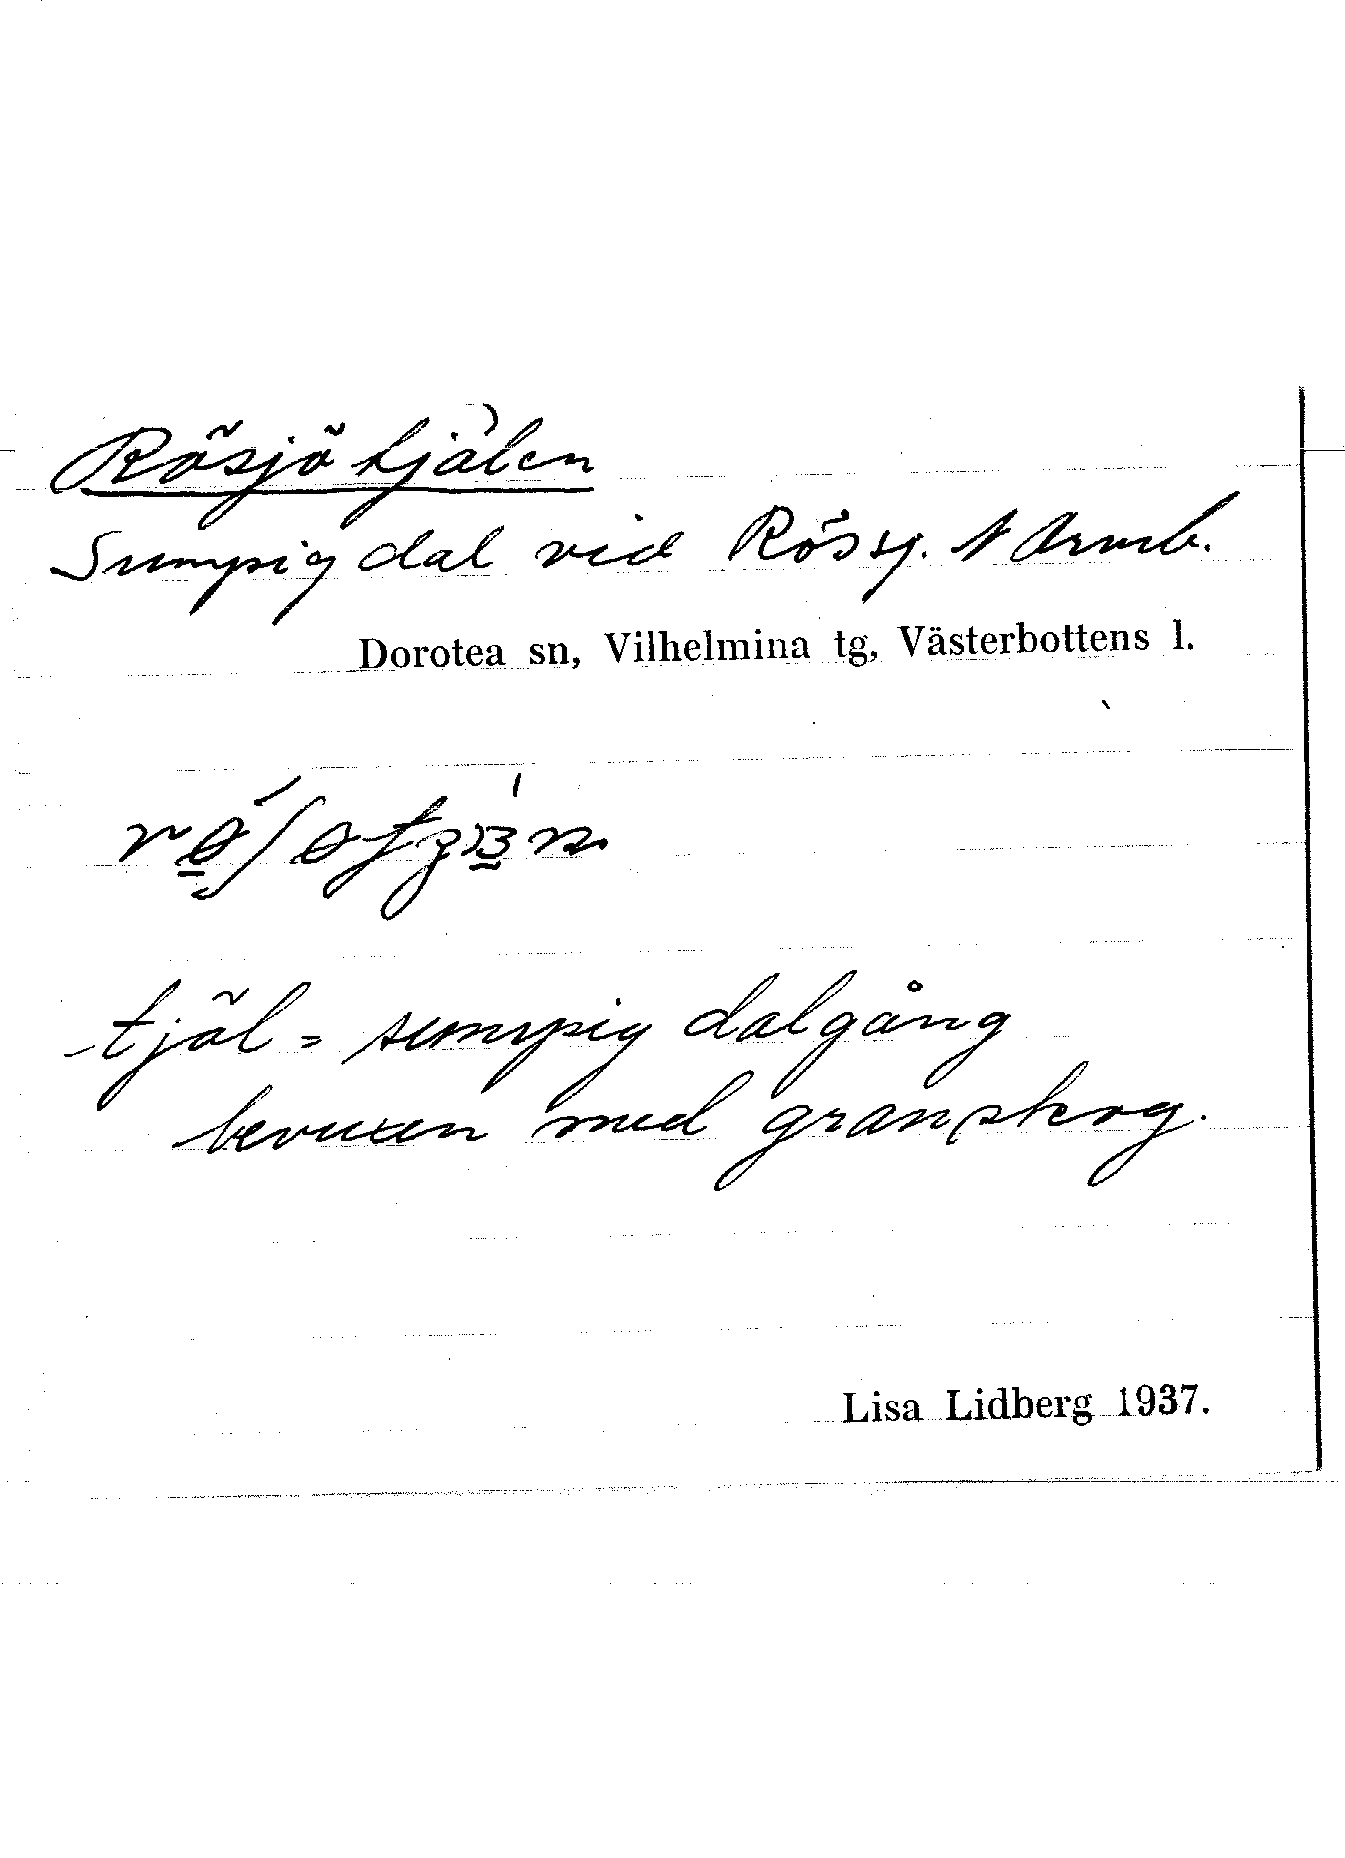 Rösjötjälen
Sumpig dal vid Rössj. N Ormb.
Dorotea sn, Vilhelmina tg, Västerbottens l.
tjäl = sumpig dalgång
bevuxen med granskog.
Lisa Lidberg 1937.